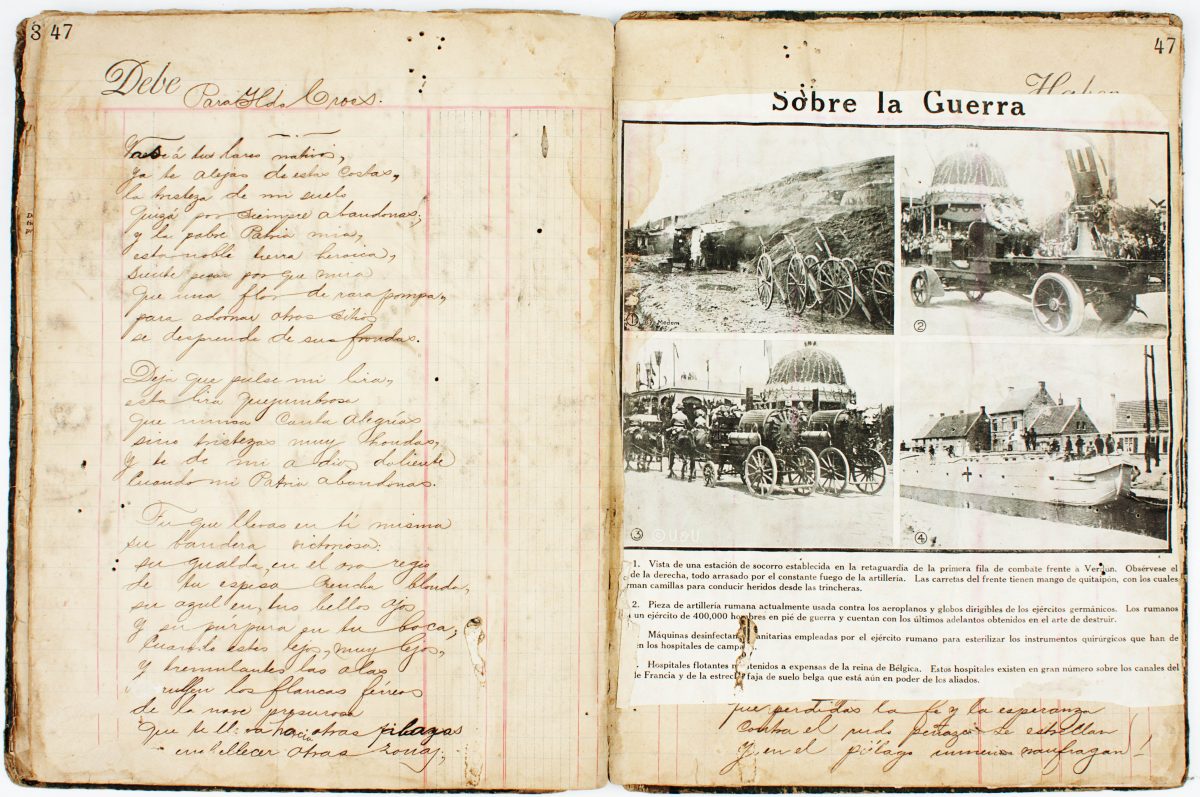 3 47
Debe
Para Ilda Croes.
Vas á tus lares nativos,
ya te alejas de estas costas,
la tristeza de mi suelo
quizá por siempre abandonas;
y la pobre Patria mia,
esta noble tierra heroica,
siente pesar por que mira
que una flor de rara pompa,
para adornar otros sitios
se desprende de sus frondas.
Deja que pulse mi lira,
esta lira quejumbrosa
que nunca canta alegrías
sino tristezas muy hondas,
y te dé mi adios doliente
cuando mi Patria abandonas.
Tu que llevas en ti misma
su bandera victoriosa:
su gualda en el oro regio
de tu espesa crencha blonda,
su azul en tus bellos ojos
y su purpura en tu boca;
Cuando estés lejos, muy lejos,
y tremulantes las alas
los flancos férreos
de la nave presurosa
que te lleva hacia otras playas
embellecer otras zonas,
47
Haber
Sobre la Guerra
1 Medem
2
3 © U & U
4
1. Vista de una estación de socorro establecida en la retaguardia de la primera fila de combate frente a Verdun. Obsérvese el
de la derecha, todo arrasado por el constante fuego de la artillería. Las carretas del frente tienen mango de quitaipón, con los cuales
rman camillas para conducir heridos desde las trincheras.
2. Pieza de artillería rumana actualmente usada contra los aeroplanos y globos dirigibles de los ejércitos germánicos. Los rumanos
un ejército de 400,000 hombres en pié de guerra y cuentan con los últimos adelantos obtenidos en el arte de destruir.
Máquinas desinfectan anitarias empleadas por el ejército rumano para esterilizar los instrumentos quirúrgicos que han de
en los hospitales de campa
. Hospitales flotantes m ntenidos a expensas de la reina de Bélgica. Estos hospitales existen en gran número sobre los canales del
le Francia y de la estrech faja de suelo belga que está aún en poder de los aliados.
que perdidas la fé y la esperanza
contra el rudo peñazco se estrellan
y en el piélago inmenso naufragan!